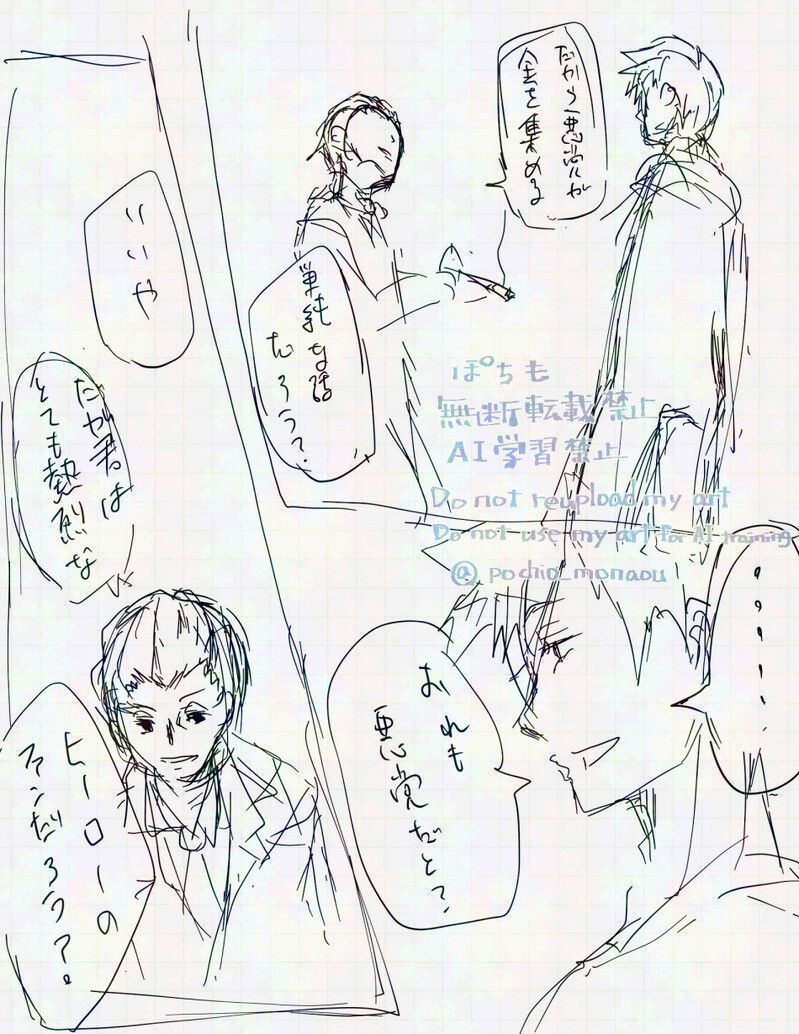 だから悪党が
金を集める
単純な話
だろう?
・・・・・・
おれも
悪党だと?
いいや
だが君は
とても熱烈な
ヒーローの
ファンだろう?
ぽちも
無断転載禁止
AI学習禁止
Do not reupload my art
Do not use my art for AI training
@pochio_monaou